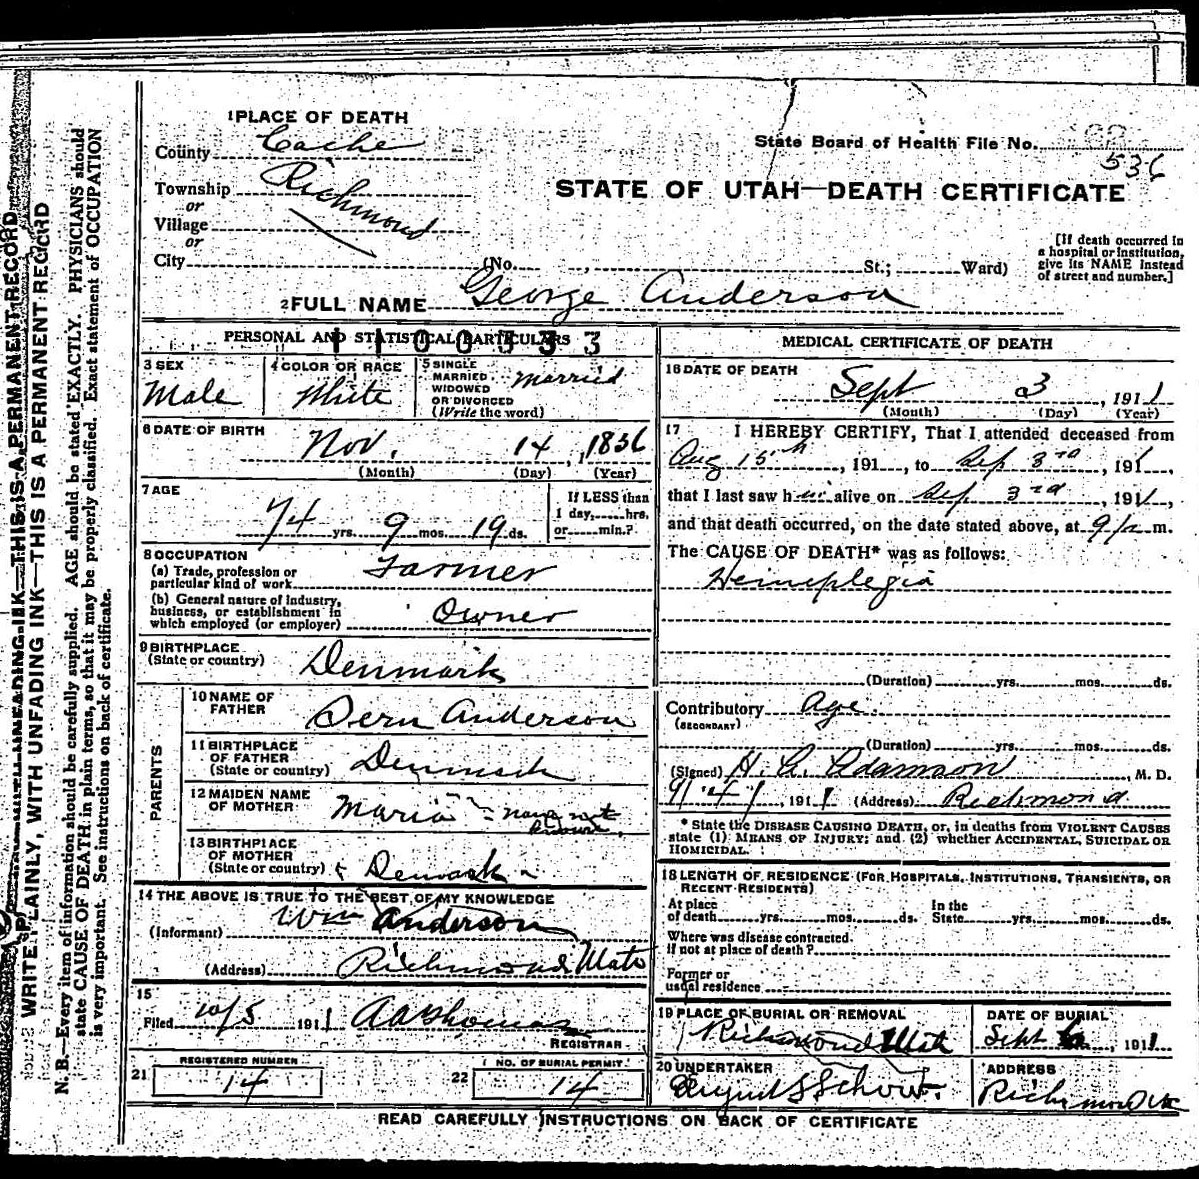 1 PLACE OF DEATH
County Cache
Township Richmond
or
Village
or
City (No. , St.; Ward)
State Board of Health File No.
536
STATE OF UTAH—DEATH CERTIFICATE
[If death occurred in
a hospital or institution,
give its NAME instead
of street and number.]
2 FULL NAME George Anderson
PERSONAL AND STATISTICAL PARTICULARS
3 SEX
Male
4 COLOR OR RACE
White
5 SINGLE
MARRIED
WIDOWED
OR DIVORCED
(Write the word)
married
6 DATE OF BIRTH
Nov. 14, 1836
(Month) (Day) (Year)
7 AGE
74 yrs. 9 mos. 19 ds.
If LESS than
1 day, hrs.
or min.?
8 OCCUPATION
(a) Trade, profession or
particular kind of work Farmer
(b) General nature of industry,
business, or establishment in
which employed (or employer) Owner
9 BIRTHPLACE
(State or country) Denmark
PARENTS
10 NAME OF
FATHER Anderson
11 BIRTHPLACE
OF FATHER
(State or country) Denmark
12 MAIDEN NAME
OF MOTHER Maria
13 BIRTHPLACE
OF MOTHER
(State or country)
14 THE ABOVE IS TRUE TO THE BEST OF MY KNOWLEDGE
(Informant) Wm Anderson
(Address) Richmond Utah
15
Filed 10/5 1911
REGISTRAR
REGISTERED NUMBER
21 14
NO. OF BURIAL PERMIT
22 14
MEDICAL CERTIFICATE OF DEATH
16 DATE OF DEATH
Sept 3, 1911
(Month) (Day) (Year)
17 I HEREBY CERTIFY, That I attended deceased from
Aug 15th, 191 , to Sep 3rd, 191
that I last saw h alive on Sep 3rd, 1911,
and that death occurred, on the date stated above, at m.
The CAUSE OF DEATH* was as follows:
Hemiplegia
(Duration) yrs. mos. ds.
Contributory Age.
(SECONDARY)
(Duration) yrs. mos. ds.
(Signed) Adamson, M. D.
1911 (Address) Richmond
* State the DISEASE CAUSING DEATH, or, in deaths from VIOLENT CAUSES
state (1) MEANS OF INJURY; and (2) whether ACCIDENTAL, SUICIDAL OR
HOMICIDAL.
18 LENGTH OF RESIDENCE (FOR HOSPITALS, INSTITUTIONS, TRANSIENTS, OR
RECENT RESIDENTS)
At place
of death yrs. mos. ds.
In the
State yrs. mos. ds.
Where was disease contracted.
If not at place of death?
Former or
usual residence
19 PLACE OF BURIAL OR REMOVAL
Richmond Utah
DATE OF BURIAL
Sept , 1911
20 UNDERTAKER
ADDRESS
Richmond
READ CAREFULLY INSTRUCTIONS ON BACK OF CERTIFICATE
WRITE PLAINLY, WITH UNFADING INK—THIS IS A PERMANENT RECORD
N. B.—Every item of information should be carefully supplied. AGE should be stated EXACTLY. PHYSICIANS should
state CAUSE OF DEATH in plain terms, so that it may be properly classified. Exact statement of OCCUPATION
is very important. See instructions on back of certificate.